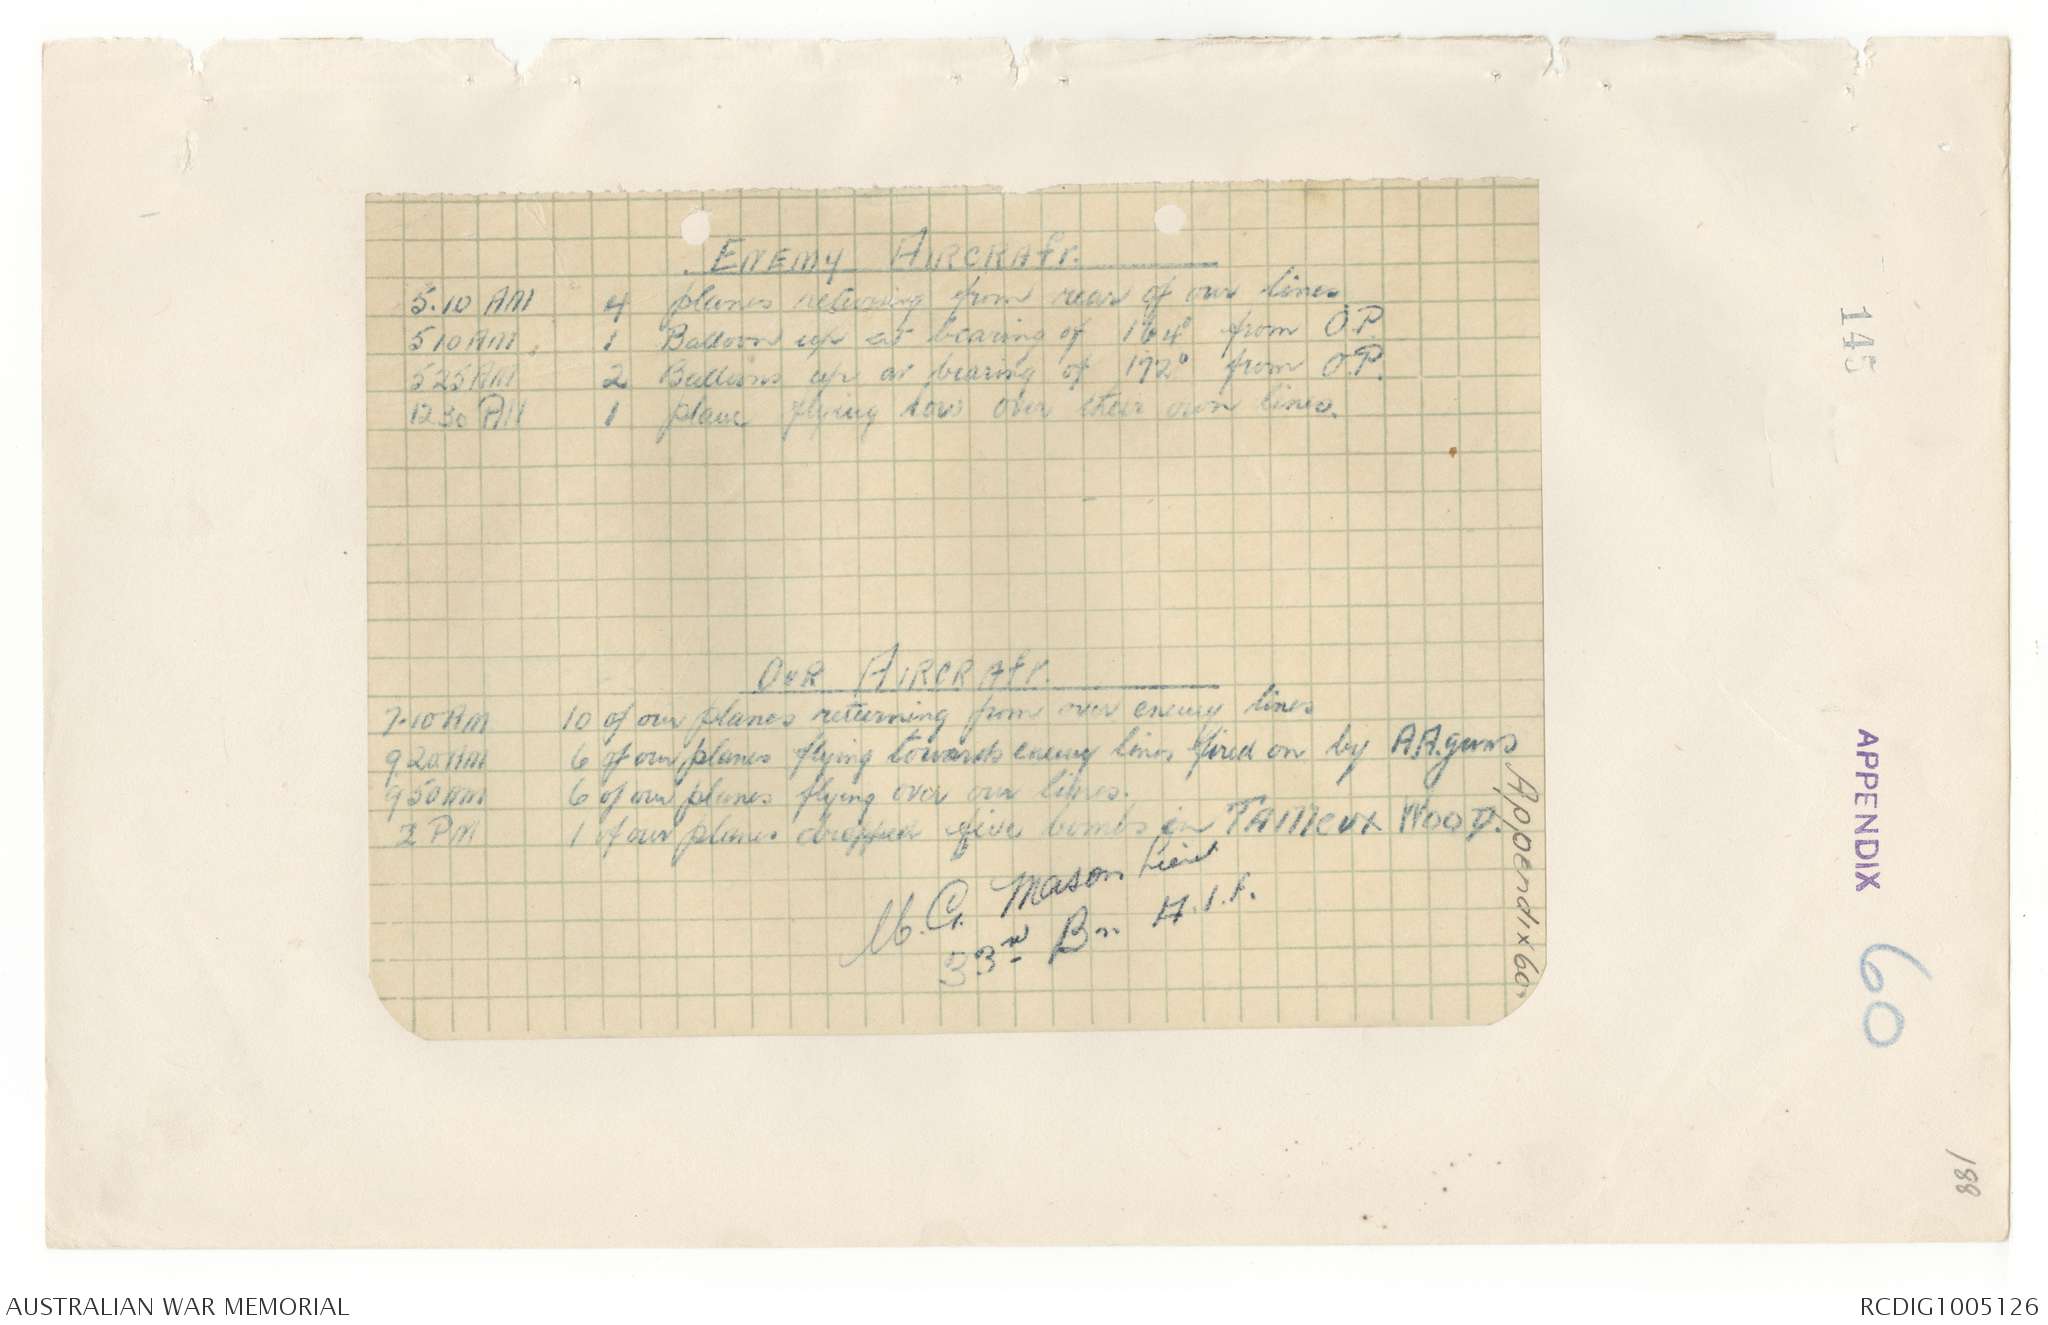 ENEMY AIRCRAFT.
5.10 AM 4 planes returning from rear of our lines
5 10 AM. 1 Balloon up at bearing of 164° from O.P.
5 25 AM 2 Balloons up at bearing of 172° from O.P.
12 30 PM 1 plane flying low over their own lines.
OUR AIRCRAFT.
7.10 AM 10 of our planes returning from over enemy lines
9.20 AM 6 of our planes flying towards enemy lines fired on by A.A. guns
9 50 AM 6 of our planes flying over our lines.
2 PM 1 of our planes dropped five bombs in WOOD.
G. Mason Lieut
33rd Bn A.I.F.
Appendix 60.
145
APPENDIX 60
188
AUSTRALIAN WAR MEMORIAL
RCDIG1005126